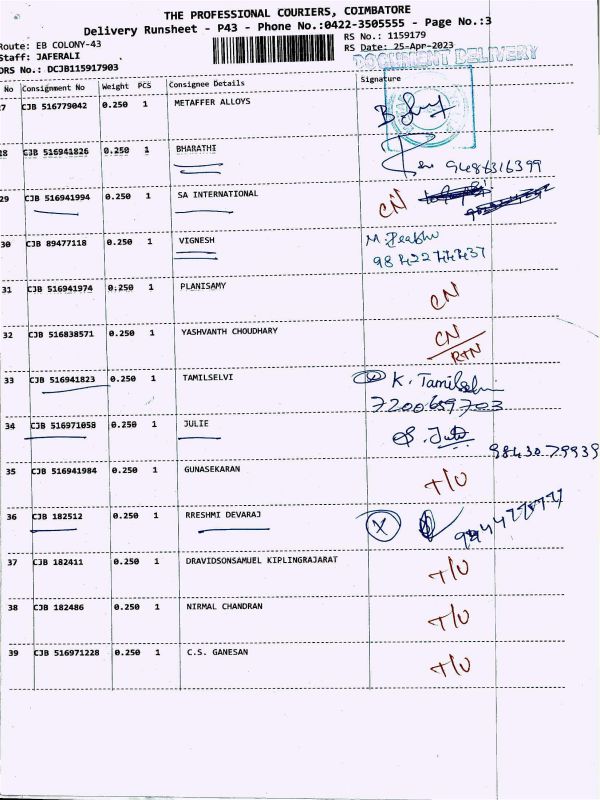 THE PROFESSIONAL COURIERS, COIMBATORE
Delivery Runsheet - P43 - Phone No.:0422-3505555 - Page No.:3
Route: EB COLONY-43
RS No.: 1159179
Staff: JAFERALI
RS Date: 25-Apr-2023
DRS No.: DCJB115917903
DOCUMENT DELIVERY
No Consignment No Weight PCS Consignee Details Signature
7 CJB 516779042 0.250 1 METAFFER ALLOYS
28 CJB 516941826 0.250 1 BHARATHI 9486316399
29 CJB 516941994 0.250 1 SA INTERNATIONAL CN
30 CJB 89477118 0.250 1 VIGNESH M. Prabhu
31 CJB 516941974 0.250 1 PLANISAMY CN
32 CJB 516838571 0.250 1 YASHVANTH CHOUDHARY CN
RTN
33 CJB 516941823 0.250 1 TAMILSELVI K. Tamilselvi
7200659703
34 CJB 516971058 0.250 1 JULIE
9843079939
35 CJB 516941984 0.250 1 GUNASEKARAN T/U
36 CJB 182512 0.250 1 RRESHMI DEVARAJ X
37 CJB 182411 0.250 1 DRAVIDSONSAMUEL KIPLINGRAJARAT T/U
38 CJB 182486 0.250 1 NIRMAL CHANDRAN T/U
39 CJB 516971228 0.250 1 C.S. GANESAN T/U